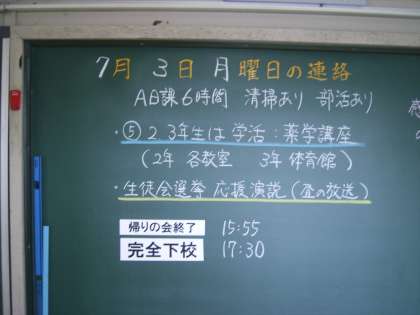 7月 3日 月曜日の連絡
A日課6時間 清掃あり 部活あり
・⑤ 2 3年生は 学活：薬学講座
(2年 各教室 3年 体育館)
・生徒会選挙 応援演説 (昼の放送)
帰りの会終了 15:55
完全下校 17:30